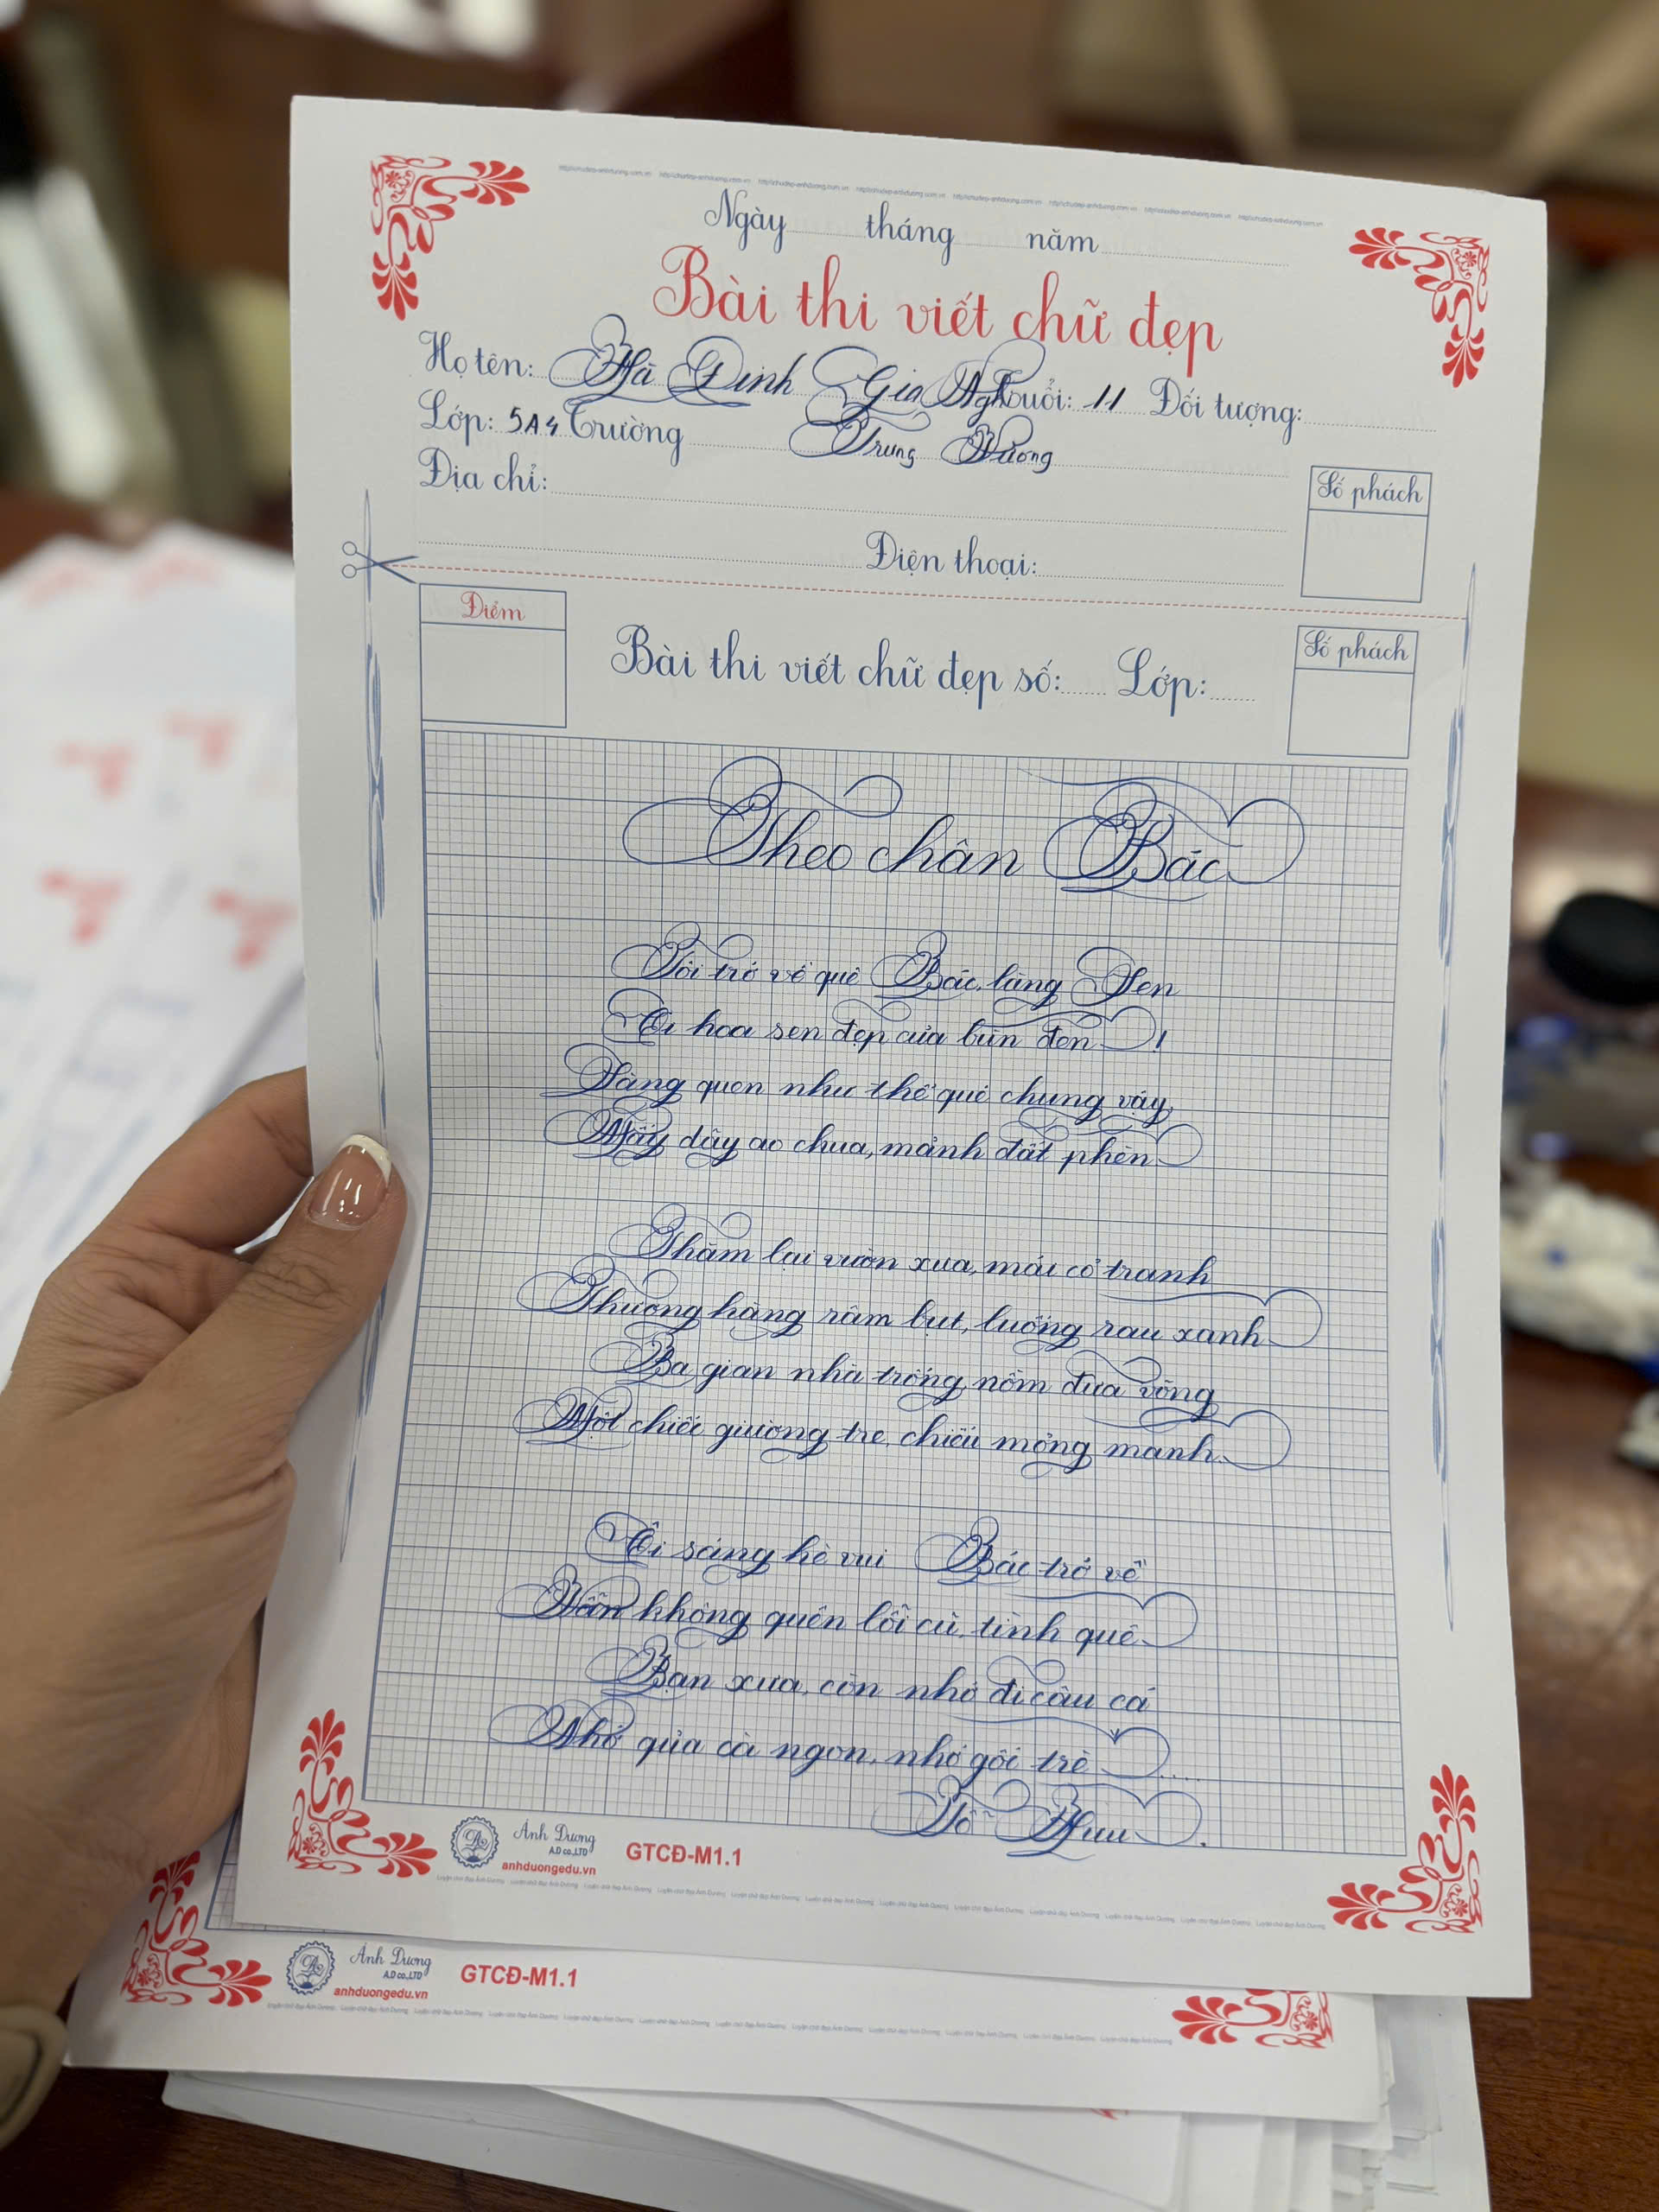 Ngày tháng năm
Bài thi viết chữ đẹp
Họ tên: Hà Đinh Gia Ngh Tuổi: 11 Đối tượng:
Lớp: 5A4 Trường Trưng Vương
Địa chỉ:
Số phách
Điện thoại:
Điểm
Bài thi viết chữ đẹp số: Lớp:
Số phách
Theo chân Bác
Tôi trở về quê Bác, làng Sen
Ôi hoa sen đẹp của bùn đen!
Làng quen như thể quê chung vậy,
Mấy dãy ao chua, mảnh đất phèn
Thăm lại vườn xưa, mái cỏ tranh
Thương hàng râm bụt, luống rau xanh
Ba gian nhà trống, nồm đưa võng
Một chiếc giường tre, chiếu mỏng manh.
Ôi sáng hè vui Bác trở về
Vẫn không quên lối cũ, tình quê
Bạn xưa, còn nhớ đi câu cá
Nhớ qủa cà ngon, nhớ gốc trè....
Tố Hữu.
Ánh Dương
A.D co.,LTD
anhduongedu.vn
GTCĐ-M1.1
Ánh Dương
A.D co.,LTD
anhduongedu.vn
GTCĐ-M1.1